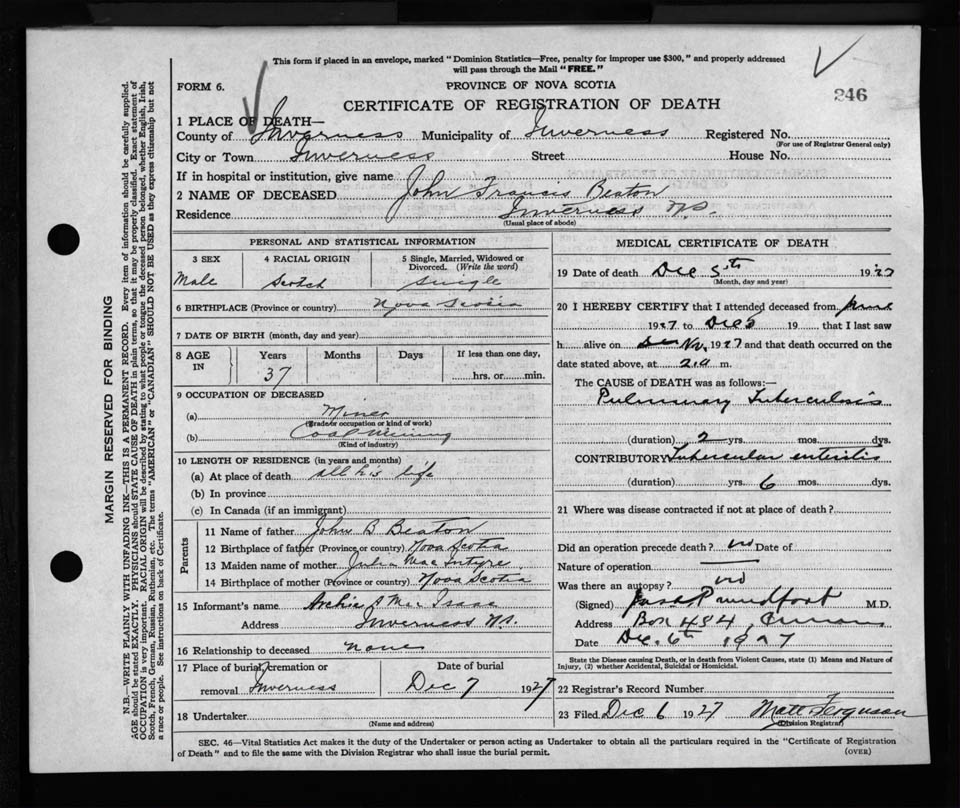 This form if placed in an envelope, marked "Dominion Statistics—Free, penalty for improper use $300," and properly addressed
will pass through the Mail "FREE."
FORM 6.
PROVINCE OF NOVA SCOTIA
246
CERTIFICATE OF REGISTRATION OF DEATH
1 PLACE OF DEATH—
County of Inverness Municipality of Inverness Registered No.
(For use of Registrar General only)
City or Town Inverness Street House No.
If in hospital or institution, give name
2 NAME OF DECEASED John Francis Beaton
Residence Inverness N.S.
(Usual place of abode)
PERSONAL AND STATISTICAL INFORMATION
3 SEX
Male
4 RACIAL ORIGIN
Scotch
5 Single, Married, Widowed or
Divorced. (Write the word)
Single
6 BIRTHPLACE (Province or country) Nova Scotia
7 DATE OF BIRTH (month, day and year)
8 AGE
IN
Years
37
Months
Days
If less than one day,
hrs. or min.
9 OCCUPATION OF DECEASED
(a) Miner
(Grade or occupation or kind of work)
(b) Coal Mining
(Kind of industry)
10 LENGTH OF RESIDENCE (in years and months)
(a) At place of death all his life
(b) In province
(c) In Canada (if an immigrant)
Parents
11 Name of father John B Beaton
12 Birthplace of father (Province or country) Nova Scotia
13 Maiden name of mother Julia MacIntyre
14 Birthplace of mother (Province or country) Nova Scotia
15 Informant's name Archie A MacIsaac
Address Inverness N.S.
16 Relationship to deceased None
17 Place of burial, cremation or
removal Inverness
Date of burial
Dec 7 1927
18 Undertaker
(Name and address)
MEDICAL CERTIFICATE OF DEATH
19 Date of death Dec 5th 1927
(Month, day and year)
20 I HEREBY CERTIFY that I attended deceased from June
1927 to Dec 5 19 that I last saw
h alive on 1927 and that death occurred on the
date stated above, at 2 a m.
The CAUSE of DEATH was as follows:—
Pulmonary Tuberculosis
(duration) 2 yrs. mos. dys.
CONTRIBUTORY Tubercular enteritis
(duration) yrs. 6 mos. dys.
21 Where was disease contracted if not at place of death?
Did an operation precede death? no Date of
Nature of operation
Was there an autopsy? no
(Signed) M.D.
Address Box 484,
Date Dec. 6th 1927
State the Disease causing Death, or in death from Violent Causes, state (1) Means and Nature of
Injury, (2) whether Accidental, Suicidal or Homicidal.
22 Registrar's Record Number
23 Filed Dec 6 1927 Matt Ferguson
(Division Registrar)
SEC. 46—Vital Statistics Act makes it the duty of the Undertaker or person acting as Undertaker to obtain all the particulars required in the "Certificate of Registration
of Death" and to file the same with the Division Registrar who shall issue the burial permit.
(OVER)
MARGIN RESERVED FOR BINDING
N.B.—WRITE PLAINLY WITH UNFADING INK—THIS IS A PERMANENT RECORD. Every item of information should be carefully supplied.
AGE should be stated EXACTLY. PHYSICIANS should STATE CAUSE OF DEATH in plain terms, so that it may be properly classified. Exact statement of
OCCUPATION is very important. RACIAL ORIGIN will be described by stating to what people or tongue the deceased person belonged, whether English, Irish,
Scotch, French, German, Russian, Ruthenian, etc. The terms "AMERICAN" or "CANADIAN" SHOULD NOT BE USED as they express citizenship but not
a race or people. See instructions on back of Certificate.